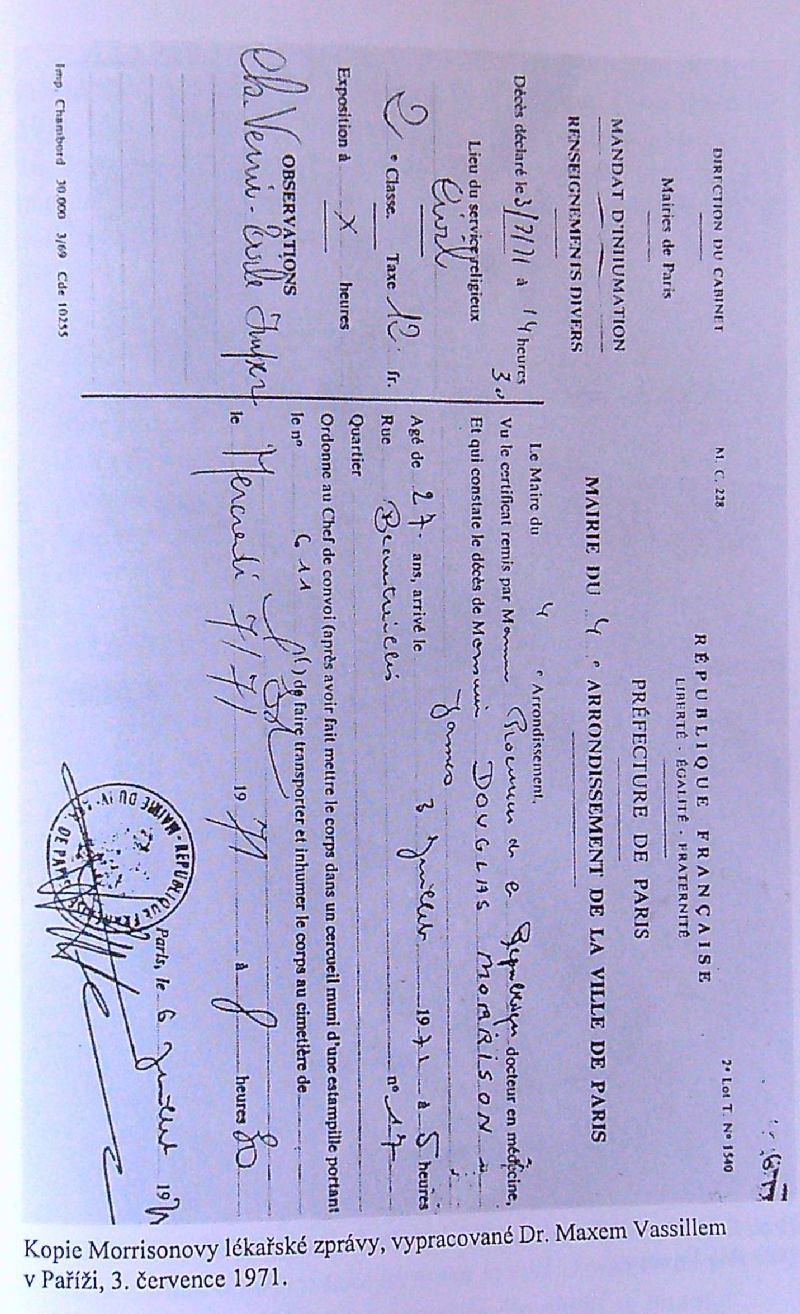 2e Lot T. No 1540
M. C. 228
DIRECTION DU CABINET
Mairies de Paris
RÉPUBLIQUE FRANÇAISE
LIBERTÉ - ÉGALITÉ - FRATERNITÉ
PRÉFECTURE DE PARIS
MANDAT D'INHUMATION
RENSEIGNEMENTS DIVERS
Décès déclaré le 3/7/71 à 14 heures 30
Lieu du service religieux
Civil
2 e Classe. Taxe 12 fr.
Exposition à x heures
OBSERVATIONS
Imp. Chambord 30.000 3/69 Cde 10255
MAIRIE DU 4 e ARRONDISSEMENT DE LA VILLE DE PARIS
Le Maire du 4 e Arrondissement,
Vu le certificat remis par Monsieur Procureur de la République docteur en médecine,
Et qui constate le décès de Monsieur DOUGLAS MORRISON
James
Agé de 27 ans, arrivé le 3 Juillet 1971 à 5 heures
Rue Beautreillis no 17
Quartier
Ordonne au Chef de convoi (après avoir fait mettre le corps dans un cercueil muni d'une estampille portant
le no 611 ) de faire transporter et inhumer le corps au cimetière de
le Mercredi 7/7/ 19 71 à 8 heures 30
Paris, le 6 Juillet 1971
RÉPUBLIQUE FRANÇAISE MAIRIE DU IV
DE PARIS
Kopie Morrisonovy lékařské zprávy, vypracované Dr. Maxem Vassillem
v Paříži, 3. července 1971.